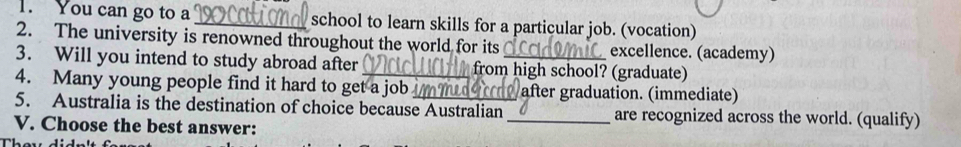 1. You can go to a vocational school to learn skills for a particular job. (vocation)
2. The university is renowned throughout the world for its academic excellence. (academy)
3. Will you intend to study abroad after from high school? (graduate)
4. Many young people find it hard to get a job after graduation. (immediate)
5. Australia is the destination of choice because Australian __________ are recognized across the world. (qualify)
V. Choose the best answer:
They didn't